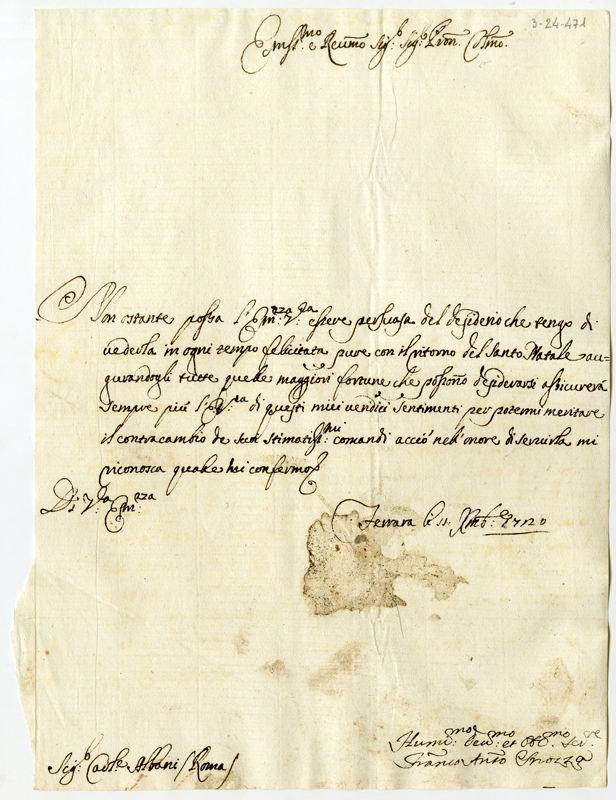 3-24-471
Em̃ſſ.mo e Reũmo Sig.r Sig.r Pron. Colmo.
Non ostante possa l'Em.nza V.ra essere persuasa del desiderio che tengo di
vederla in ogni tempo felicitata pure con il ritorno del Santo Natale au=
gurandogli tutte quelle maggiori fortune che possono desiderarsi assicurerà
sempre più l'E.V.ra di questi miei sentimenti per potermi meritare
il contracambio de suoi stimatiss.mi comandi acciò nell'onore di servirla mi
riconosca quale mi confermo
Di V.ra Em.nza
Ferrara li 11. Xmb.e 1720
Humil.mo Deu.mo et Obl.mo Ser.re
Franco Anto
Sig.r Cardle Albani (Roma)